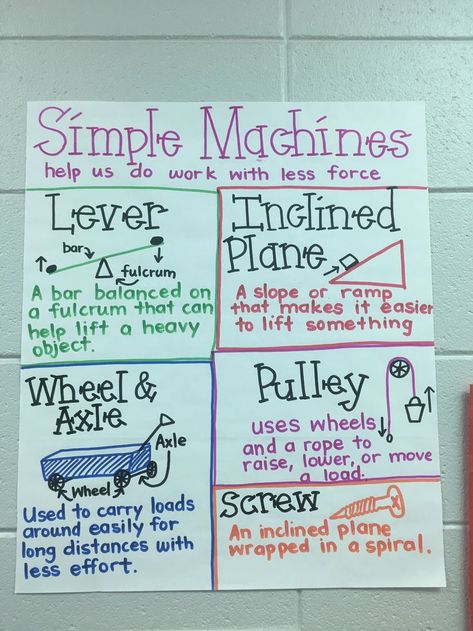 Simple Machines
help us do work with less force
Lever
bar
fulcrum
A bar balanced on
a fulcrum that can
help lift a heavy
object.
Inclined
Plane
A slope or ramp
that makes it easier
to lift something
Wheel &
Axle
Axle
Wheel
Used to carry loads
around easily for
long distances with
less effort.
Pulley
uses wheels
and a rope to
raise, lower, or move
a load.
Screw
An inclined plane
wrapped in a spiral.